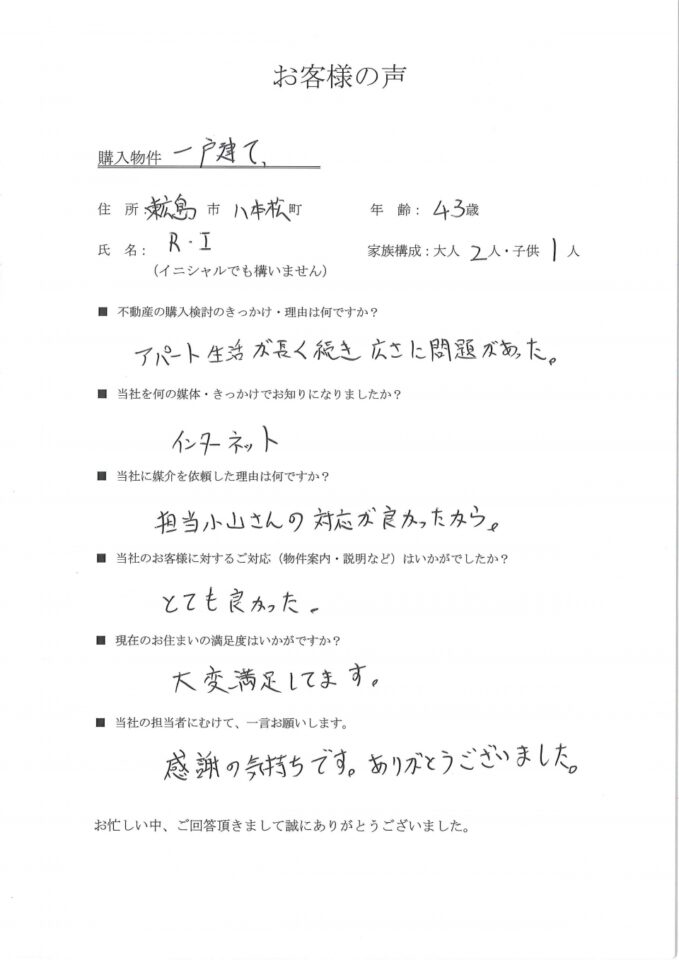 お客様の声
購入物件 一戸建て、
住 所：東広島 市 八本松町 年 齢：43歳
氏 名： R・I 家族構成：大人 2人・子供 1人
（イニシャルでも構いません）
■ 不動産の購入検討のきっかけ・理由は何ですか？
アパート生活が長く続き 広さに問題があった。
■ 当社を何の媒体・きっかけでお知りになりましたか？
インターネット
■ 当社に媒介を依頼した理由は何ですか？
担当小山さんの対応が良かったから。
■ 当社のお客様に対するご対応（物件案内・説明など）はいかがでしたか？
とても良かった。
■ 現在のお住まいの満足度はいかがですか？
大変満足してます。
■ 当社の担当者にむけて、一言お願いします。
感謝の気持ちです。ありがとうございました。
お忙しい中、ご回答頂きまして誠にありがとうございました。